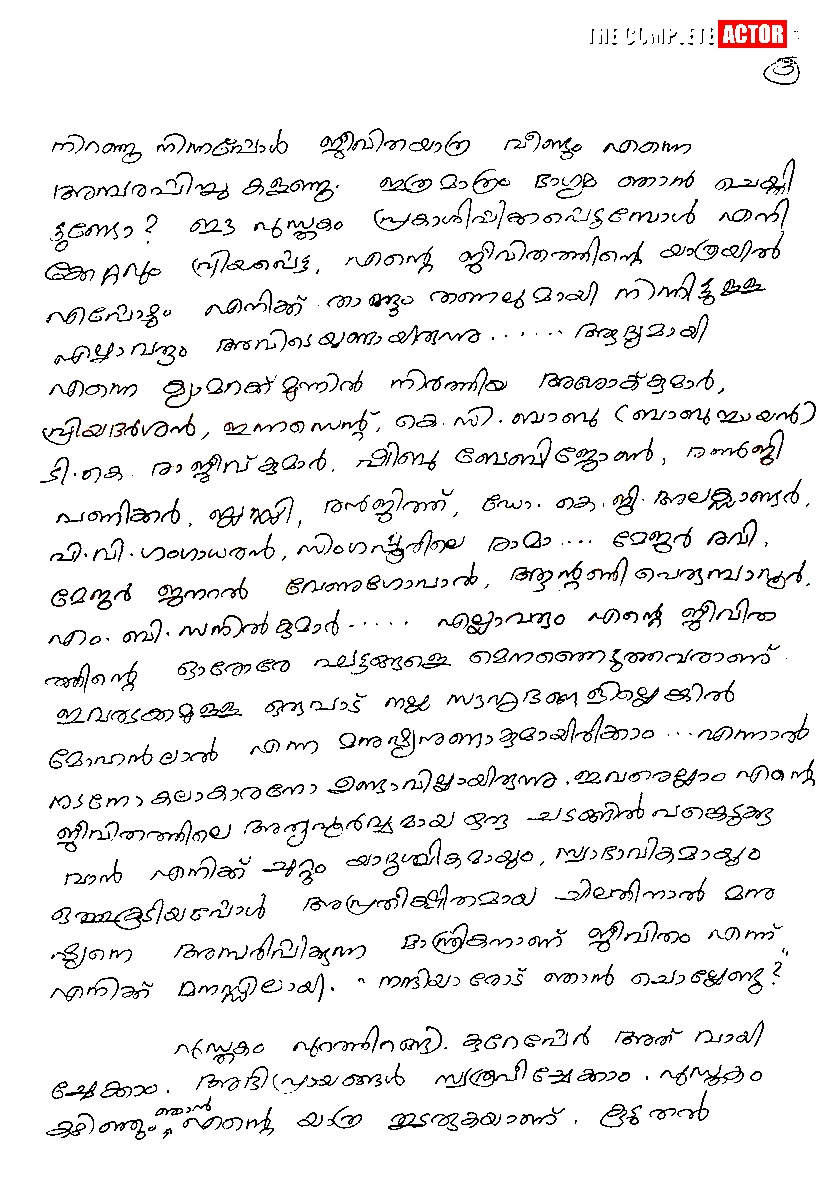 THE COMPLETE ACTOR
3
നിറഞ്ഞു നിന്നപ്പോൾ ജീവിതയാത്ര വീണ്ടും എന്നെ
അമ്പരപ്പിച്ചു കളഞ്ഞു. ഇത്രമാത്രം ഭാഗ്യം ഞാൻ ചെയ്തി
ട്ടുണ്ടോ? ഈ പുസ്തകം പ്രകാശിപ്പിക്കപ്പെടുമ്പോൾ എനി
ക്കേറ്റവും പ്രിയപ്പെട്ട, എന്റെ ജീവിതത്തിന്റെ യാത്രയിൽ
എപ്പോഴും എനിക്ക് താങ്ങും തണലുമായി നിന്നിട്ടുള്ള
എല്ലാവരും അവിടെയുണ്ടായിരുന്നു...... ആദ്യമായി
എന്നെ ക്യാമറക്ക് മുന്നിൽ നിർത്തിയ അശോക്കുമാർ,
പ്രിയദർശൻ, ഇന്നസെന്റ്, കെ.സി.ബാബു (ബാബുച്ചായൻ)
ടി.കെ. രാജീവ്കുമാർ, ഷിബു ബേബിജോൺ, രൺജി
പണിക്കർ, രൻജിത്ത്, ഡോ. കെ.ജി.അലക്സാണ്ടർ,
പി.വി.ഗംഗാധരൻ, സിംഗപ്പൂരിലെ രാമാ.... മേജർ രവി,
മേജർ ജനറൽ വേണുഗോപാൽ, ആന്റണി പെരുമ്പാവൂർ,
എം.ബി.സനിൽകുമാർ..... എല്ലാവരും എന്റെ ജീവിത
ത്തിന്റെ ഓരോരോ ഘട്ടങ്ങളെ മെനഞ്ഞെടുത്തവരാണ്.
ഇവരടക്കമുള്ള ഒരുപാട് നല്ല സുഹൃത്തുക്കളില്ലെങ്കിൽ
മോഹൻലാൽ എന്ന മനുഷ്യനുണ്ടാകുമായിരിക്കാം...എന്നാൽ
നടനോ കലാകാരനോ ഉണ്ടാവില്ലായിരുന്നു. ഇവരെല്ലാം എന്റെ
ജീവിതത്തിലെ അത്യപൂർവ്വമായ ഒരു ചടങ്ങിൽ പങ്കെടുക്കു
വാൻ എനിക്ക് ചുറ്റും യാദൃശ്ചികമായും, സ്വാഭാവികമായും
ഒത്തുകൂടിയപ്പോൾ അപ്രതീക്ഷിതമായ ചിലതിനാൽ മനു
ഷ്യനെ അമ്പരിപ്പിക്കുന്ന മാന്ത്രികനാണ് ജീവിതം എന്ന്
എനിക്ക് മനസ്സിലായി. "നന്ദിയാരോട് ഞാൻ ചൊല്ലേണ്ടു?"
പുസ്തകം പുറത്തിറങ്ങി. കുറേപ്പേർ അത് വായി
ച്ചേക്കാം. അഭിപ്രായങ്ങൾ സ്വരൂപിച്ചേക്കാം. പുസ്തകം
കഴിഞ്ഞും ഞാൻ എന്റെ യാത്ര തുടരുകയാണ്. കൂടുതൽ